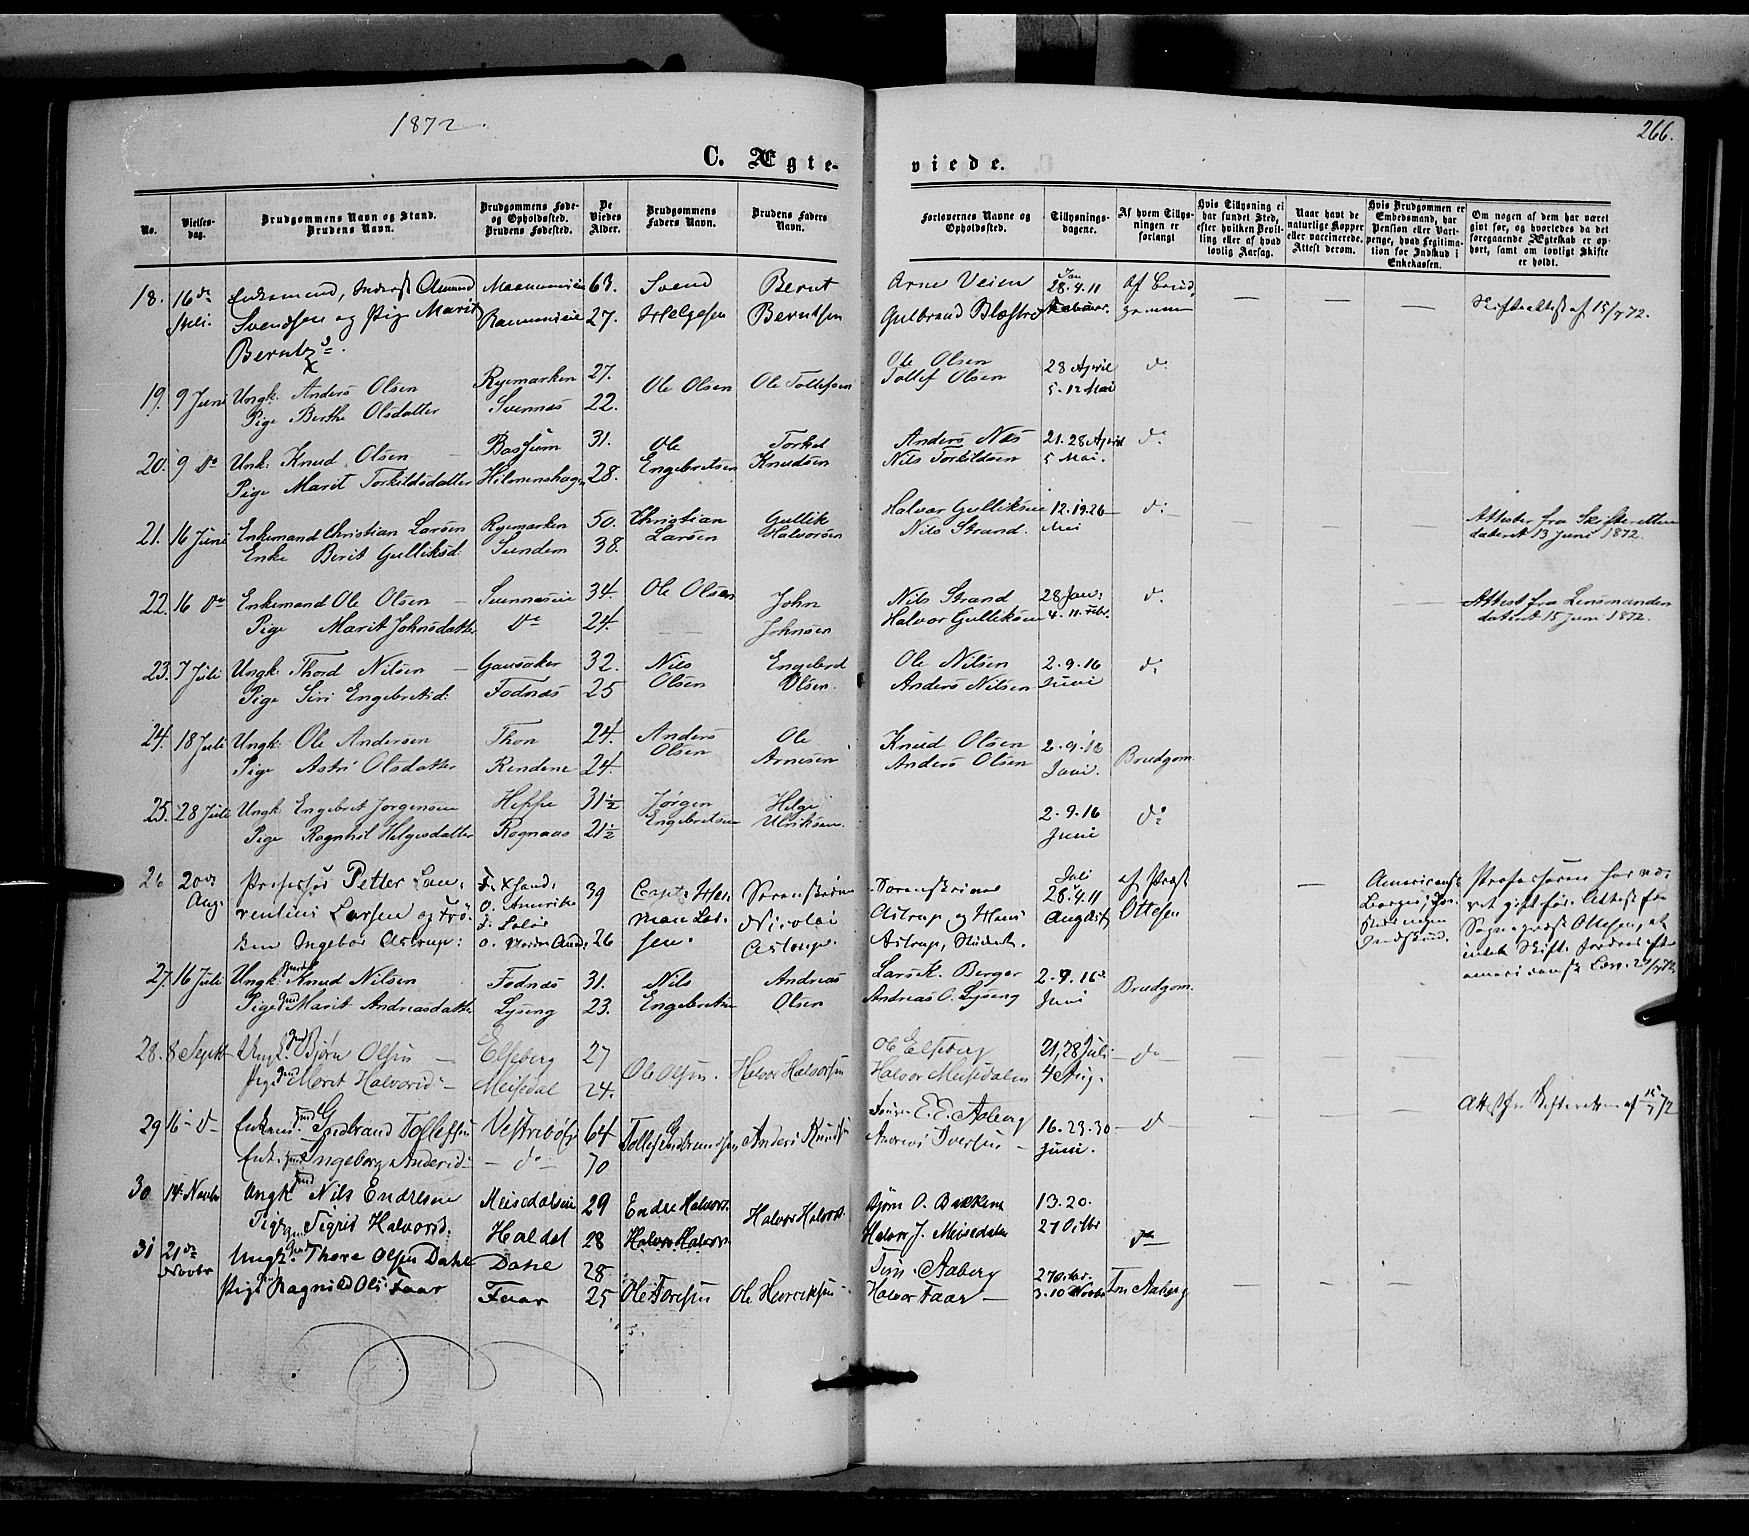 1872.
266.
C. Ægte-
viede.
No.
Vielses-
dag.
Brudgommens Navn og Stand.
Brudens Navn.
Brudgommens Føde-
og Opholdssted.
Brudens Fødested.
De
Viedes
Alder.
Brudgommens
Faders Navn.
Brudens Faders
Navn.
Forlovernes Navne og
Opholdssted.
Tillysnings-
dagene.
Af hvem Tillys-
ningen er
forlangt
Hvis Tillysning ei
har fundet Sted,
efter hvilken Bevil-
ling eller af hvad
lovlig Aarsag.
Naar havt de
naturlige Kopper
eller vaccinerede.
Attest derom.
Hvis Brudgommen er
Embedsmand, har
Pension eller Vart-
penge, hvad Legitima-
tion for Indskud i
Enkekassen.
Om nogen af dem har været
gift før, og hvorledes da det
foregaaende Ægteskab er op-
hørt, samt om lovligt Skifte
er holdt.
18. 16de Enkemand, Inderst Amund 63. Svend Bernt Arne Veien Jan 28.4.11 Af Brud
Svendsen og Pige Marit 27. Helgesen Berntsen Gulbrand Februar. gommen Skifteattest af 15/ 72.
Bernts
19. 9 Juni Ungk. Anders Olsen Ryemarken 27. Ole Olsen Ole Tollefsen Ole Olsen 28 April do
Pige Berthe Olsdatter Svennes 22. Tollef Olsen 5. 12 Mai
20. 9 do Unk. Knud Olsen 31. Ole Torkel Anders Næs 21. 28 April do
Pige Marit Torkildsdatter 28. Engebretsen Knudsen Nils Torkildsen 5 Mai.
21. 16 Juni Enkemand Christian Larsen Ryemarken 50. Christian Gullik Halvor Gulliksen 12. 19. 26 do Attester fra Skifteretten
Enke Berit Gulliksd. Sundem 38. Larsen Halvorsen Nils Strand. Mai dateret 13 Juni 1872.
22. 16 do Enkemand Ole Olsen 34. Ole Olsen John Nils Strand 28 Jan: do Attest fra Lensmanden
Pige Marit Johnsdatter do 24. Johnsen Halvor Gulliksen 4. 11. Febr. dateret 15 Juni 1872.
23. 7 Juli Ungk. Thord Nilsen Gausaker 32. Nils Engebret Ole Nilsen 2. 9. 16 do
Pige Siri Engebretsd: Fodnæs 25 Olsen Olsen. Anders Nilsen Juni
24. 18 Juli Ungk. Ole Andersen Thon 24. Anders Ole Knud Olsen 2. 9. 16
Pige Astri Olsdatter Rendene 24. Olsen Arnesen Anders Olsen Juni. Brudgom.
25. 28 Juli Ungk. Engebret Jørgensen Hippe 31 1/2 Jørgen Helge 2. 9. 16 do
Pige Ragnhil Helgesdatter Rognaas 21 1/2 Engebretsen Ulriksen. Juni
26 20de Professor Petter Lau- 39 Capt. Her- Sorenskriver Sorenskriver Juli 28. 4. 11 af Præst Amerikansk Professoren har væ-
Aug. rentius Larsen og Frø- o. Amerika man Lar- Nicolai Astrup og Hans August Ottesen Borger, In- ret gift før. Attest fra
ken Ingebor Astrup: o. Nordre Aurd. 26 sen. Astrup. Astrup, Student. gen Indskud. Sognepræst Ottesen, at
intet Skifte fordres efter
amerikansk Lov.
27. 16 Juli Ungk. Knud Nilsen Fodnæs 31. Nils Andreas Lars K. Berger 2. 9. 16 Brudgom.
Pige Marit Andreasdatter Lyseng 23. Engebretsen Olsen Andreas O. Lyseng Juni
28. 8 Septb Ungk. Bjørn Olsen Elseberg 27 Ole Olsen. Halvor Halvorsen Ole Elseberg 21, 28 Juli do
Pige Marit Halvorsd: Meisdal 24. Halvor Meisdalen 4 Aug.
29 16 d Enkem. Gudbrand Tollefsen 64 Tollef Gudbrandsen Anders Knuds E. E. Aaberg 16. 23. 30 d
Enke Ingeborg Andersd: do 70 Andreas Iversen Juni.
30 14 Novbr Ungk. Nils Endresen Meisdalseie 29 Endre Halvors. Halvor Halvors. Bjørn O. Bakken 13. 20.
Pige Sigrid Halvorsd. Haldal 28 Halvor Halvors Halvor J. Meisdalen 27 Oktbr do
31 21de Ungk. Thore Olsen Dahl Dahl 28 Aaberg 27 Okt.
Novbr Pige Ragnild Ols: Faar Faar 25 Ole Toresen Ole Henriksen Halvor Faar 3. 10 Novbr Aaberg